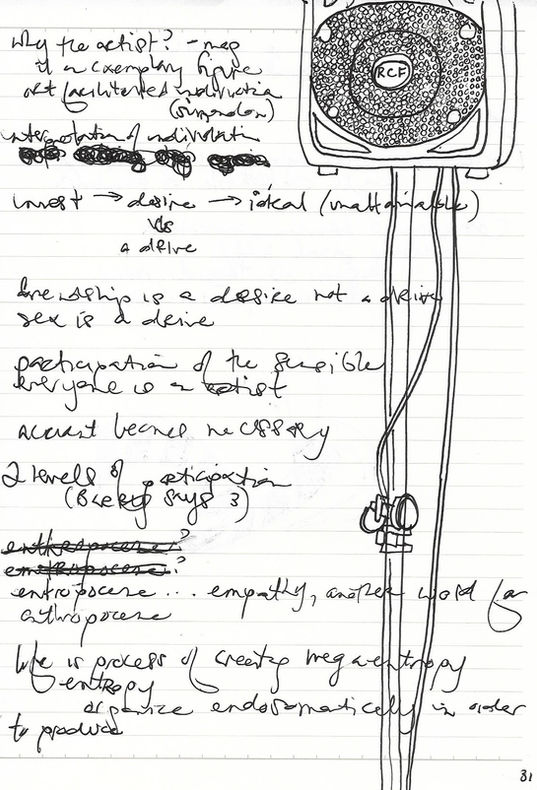 why the artist? - may
it an exemplary figure
of facilitated individuation
(Simondon)
interpretation of individuation
invest → desire → ideal (unattainable)
vs
a drive
friendship is a desire not a drive
sex is a drive
participation of the sensible
everyone is an artist
account becomes necessary
2 levels of participation
says 3)
entropocene ... empathy, another word for
anthropocene
life is process of creating negentropy
entropy
organize endosomatically in order
to produce
RCF
31